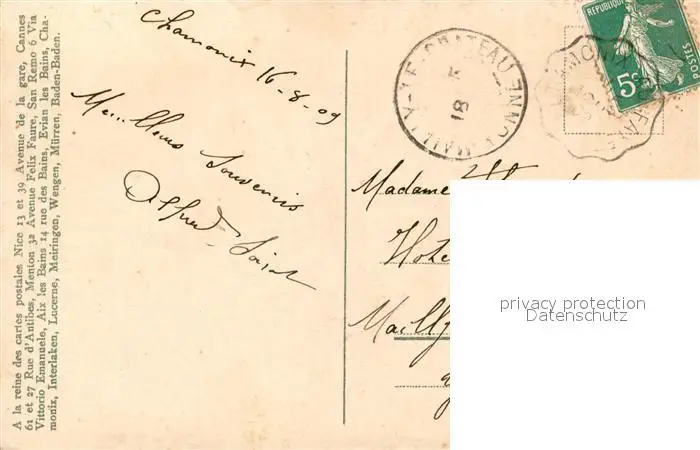 A la reine des cartes postales Nice 13 et 39 Avenue de la gare, Cannes
61 et 27 Rue d'Antibes, Menton 32 Avenue Felix Faure, San Remo 6 Via
Vittorio Emanuele, Aix les Bains 14 rue des Bains, Evian les Bains, Cha-
monix, Interlaken, Lucerne, Meiringen, Wengen, Mürren, Baden-Baden.
Chamonix 16-8-09
Meilleurs Souvenirs
Alfred
MAILLY-LE-CHATEAU YONNE
18
REPUBLIQUE
POSTES
5c
Madame
Hote
Mailly
privacy protection
Datenschutz